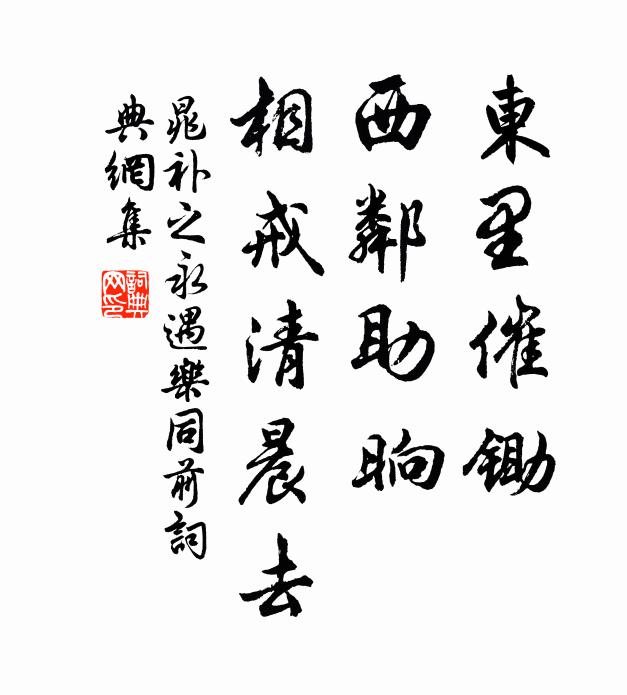 東里催鋤
西鄰助晌
相戒清晨去
晁补之永遇樂同前詞
典網集
詞典网印